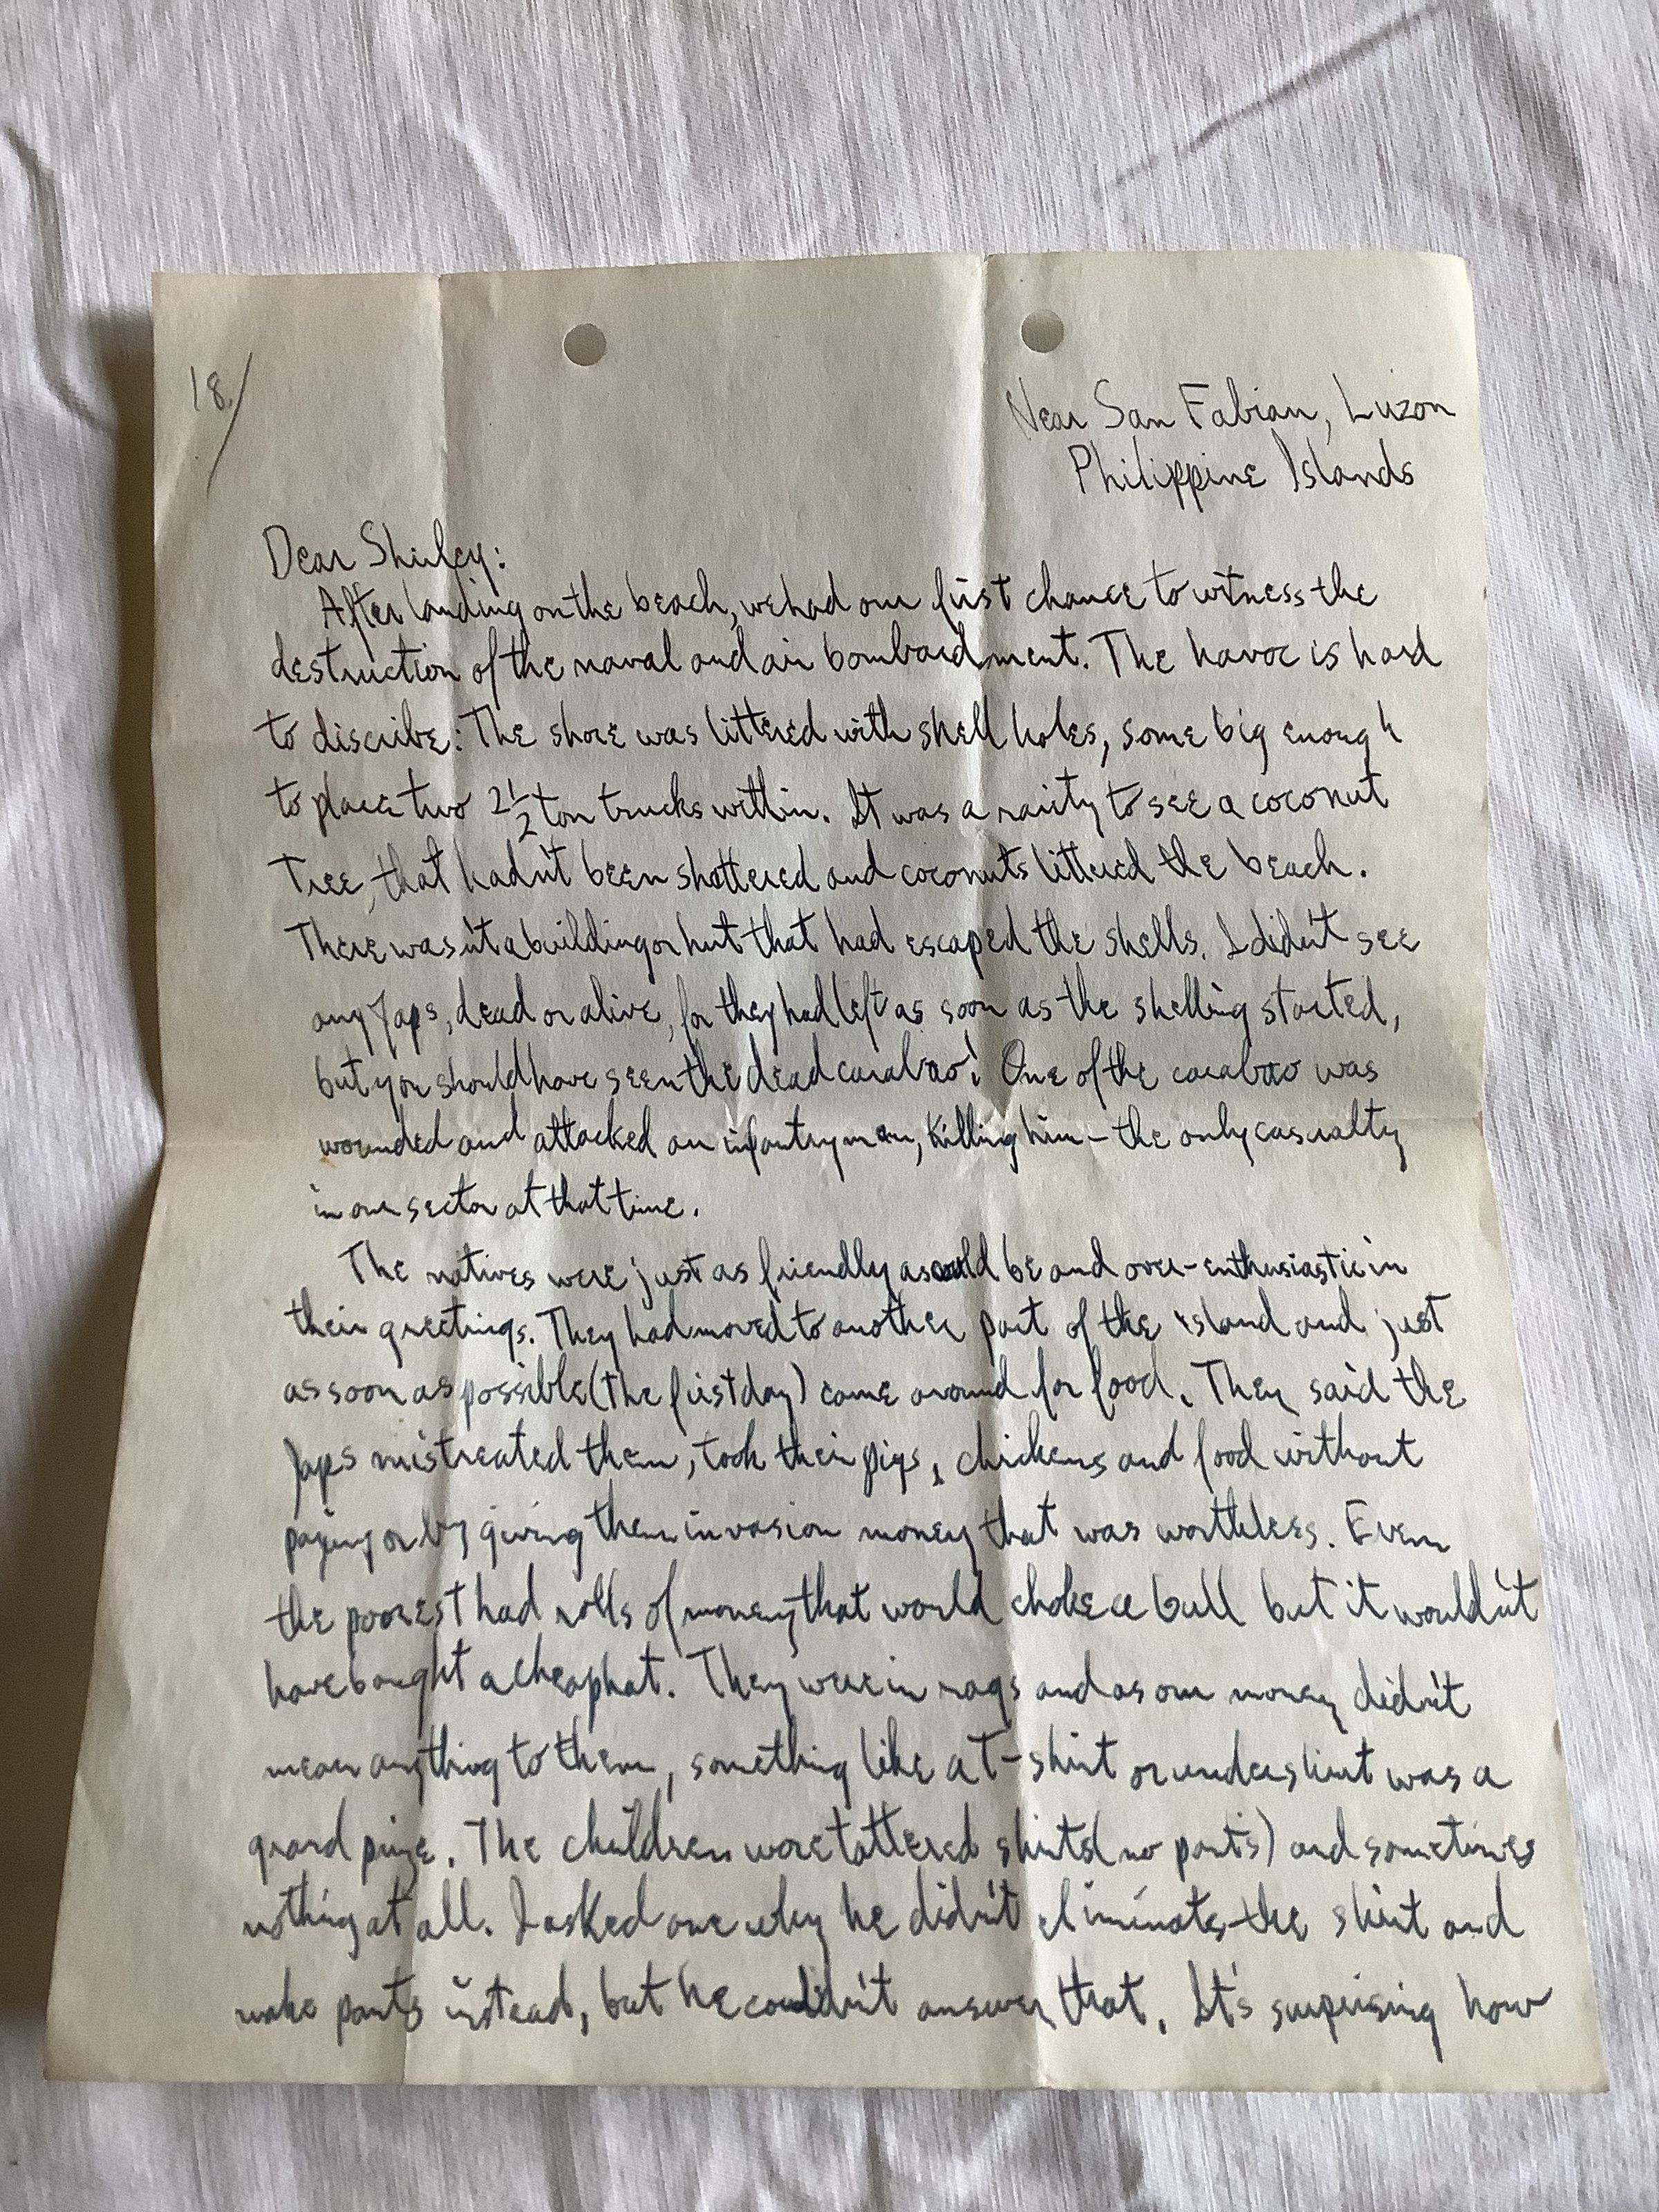 18.
Near San Fabian, Luzon
Philippine Islands
Dear Shirley:
After landing on the beach, we had our first chance to witness the
destruction of the naval and air bombardment. The havoc is hard
to discribe: The shore was littered with shell holes, some big enough
to place two 2 1/2 ton trucks within. It was a rarity to see a coconut
tree, that hadn't been shattered and coconuts littered the beach.
There wasn't a building or hut that had escaped the shells. I didn't see
any Japs, dead or alive, for they had left as soon as the shelling started,
but you should have seen the dead carabao! One of the carabao was
wounded and attacked an infantryman, killing him - the only casualty
in our sector at that time.
The natives were just as friendly as could be and over-enthusiastic in
their greetings. They had moved to another part of the island and just
as soon as possible (the first day) came around for food. They said the
Japs mistreated them, took their pigs, chickens and food without
paying or by giving them invasion money that was worthless. Even
the poorest had rolls of money that would choke a bull but it wouldn't
have bought a cheap hat. They were in rags and as our money didn't
mean anything to them, something like a T-shirt or undershirt was a
grand prize. The children wore tattered shirts (no pants) and sometimes
nothing at all. I asked one why he didn't eliminate the shirt and
make pants instead, but he couldn't answer that. It's surprising how